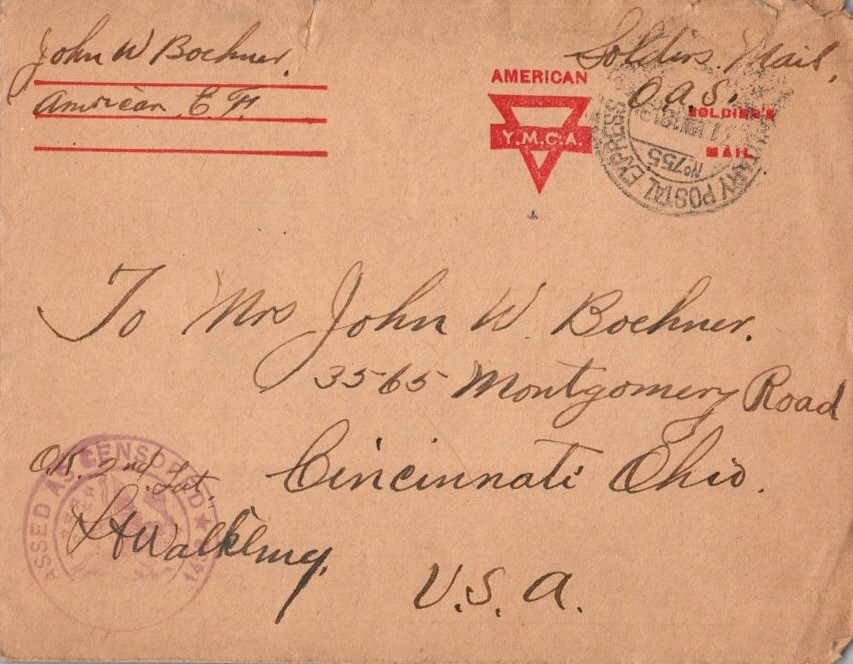 John W Boehner,
American E. F.
AMERICAN
Y.M.C.A.
Soldiers Mail,
O. A. S.
SOLDIER'S
MAIL
MILITARY POSTAL EXPRESS
No 755
To Mrs John W. Boehner.
3565 Montgomery Road
Cincinnati Ohio.
U. S. A.
O.K. 2nd. Lut.
ASSED AS CENSORED